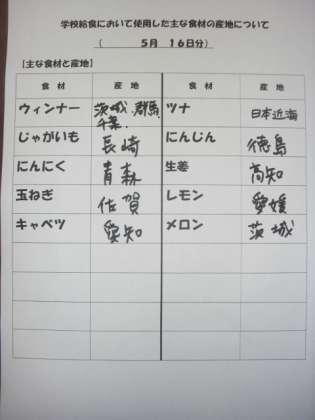 学校給食において使用した主な食材の産地について
( 5月 16日分)
【主な食材と産地】
食材 産地 食材 産地
ウィンナー 茨城、群馬、千葉 ツナ 日本近海
じゃがいも 長崎 にんじん 徳島
にんにく 青森 生姜 高知
玉ねぎ 佐賀 レモン 愛媛
キャベツ 愛知 メロン 茨城